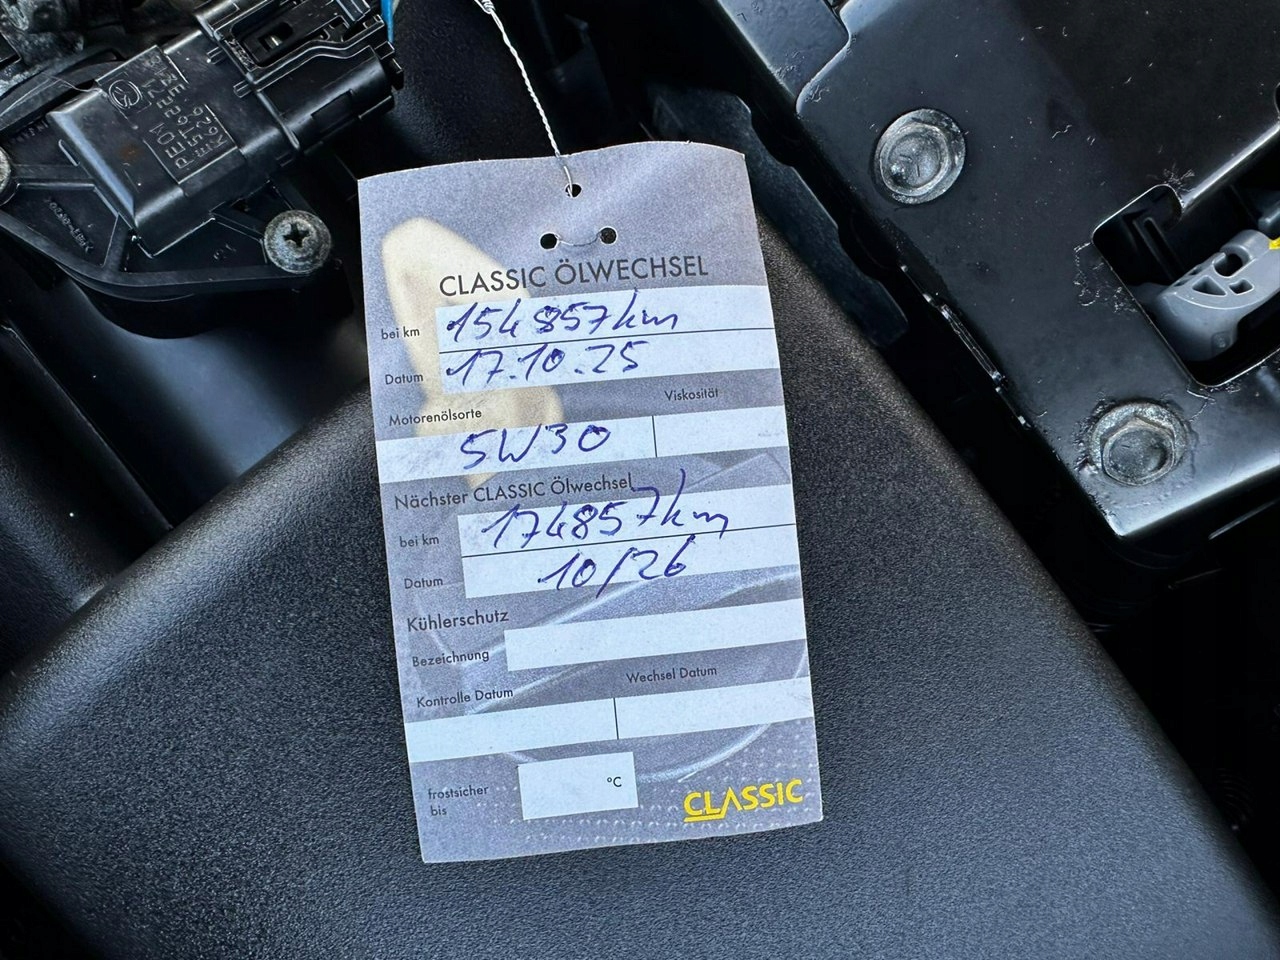 CLASSIC ÖLWECHSEL
bei km 154857km
Datum 17.10.25
Motorenölsorte Viskosität
5W30
Nächster CLASSIC Ölwechsel
bei km 174857km
Datum 10/26
Kühlerschutz
Bezeichnung
Kontrolle Datum Wechsel Datum
frostsicher
bis
°C
CLASSIC